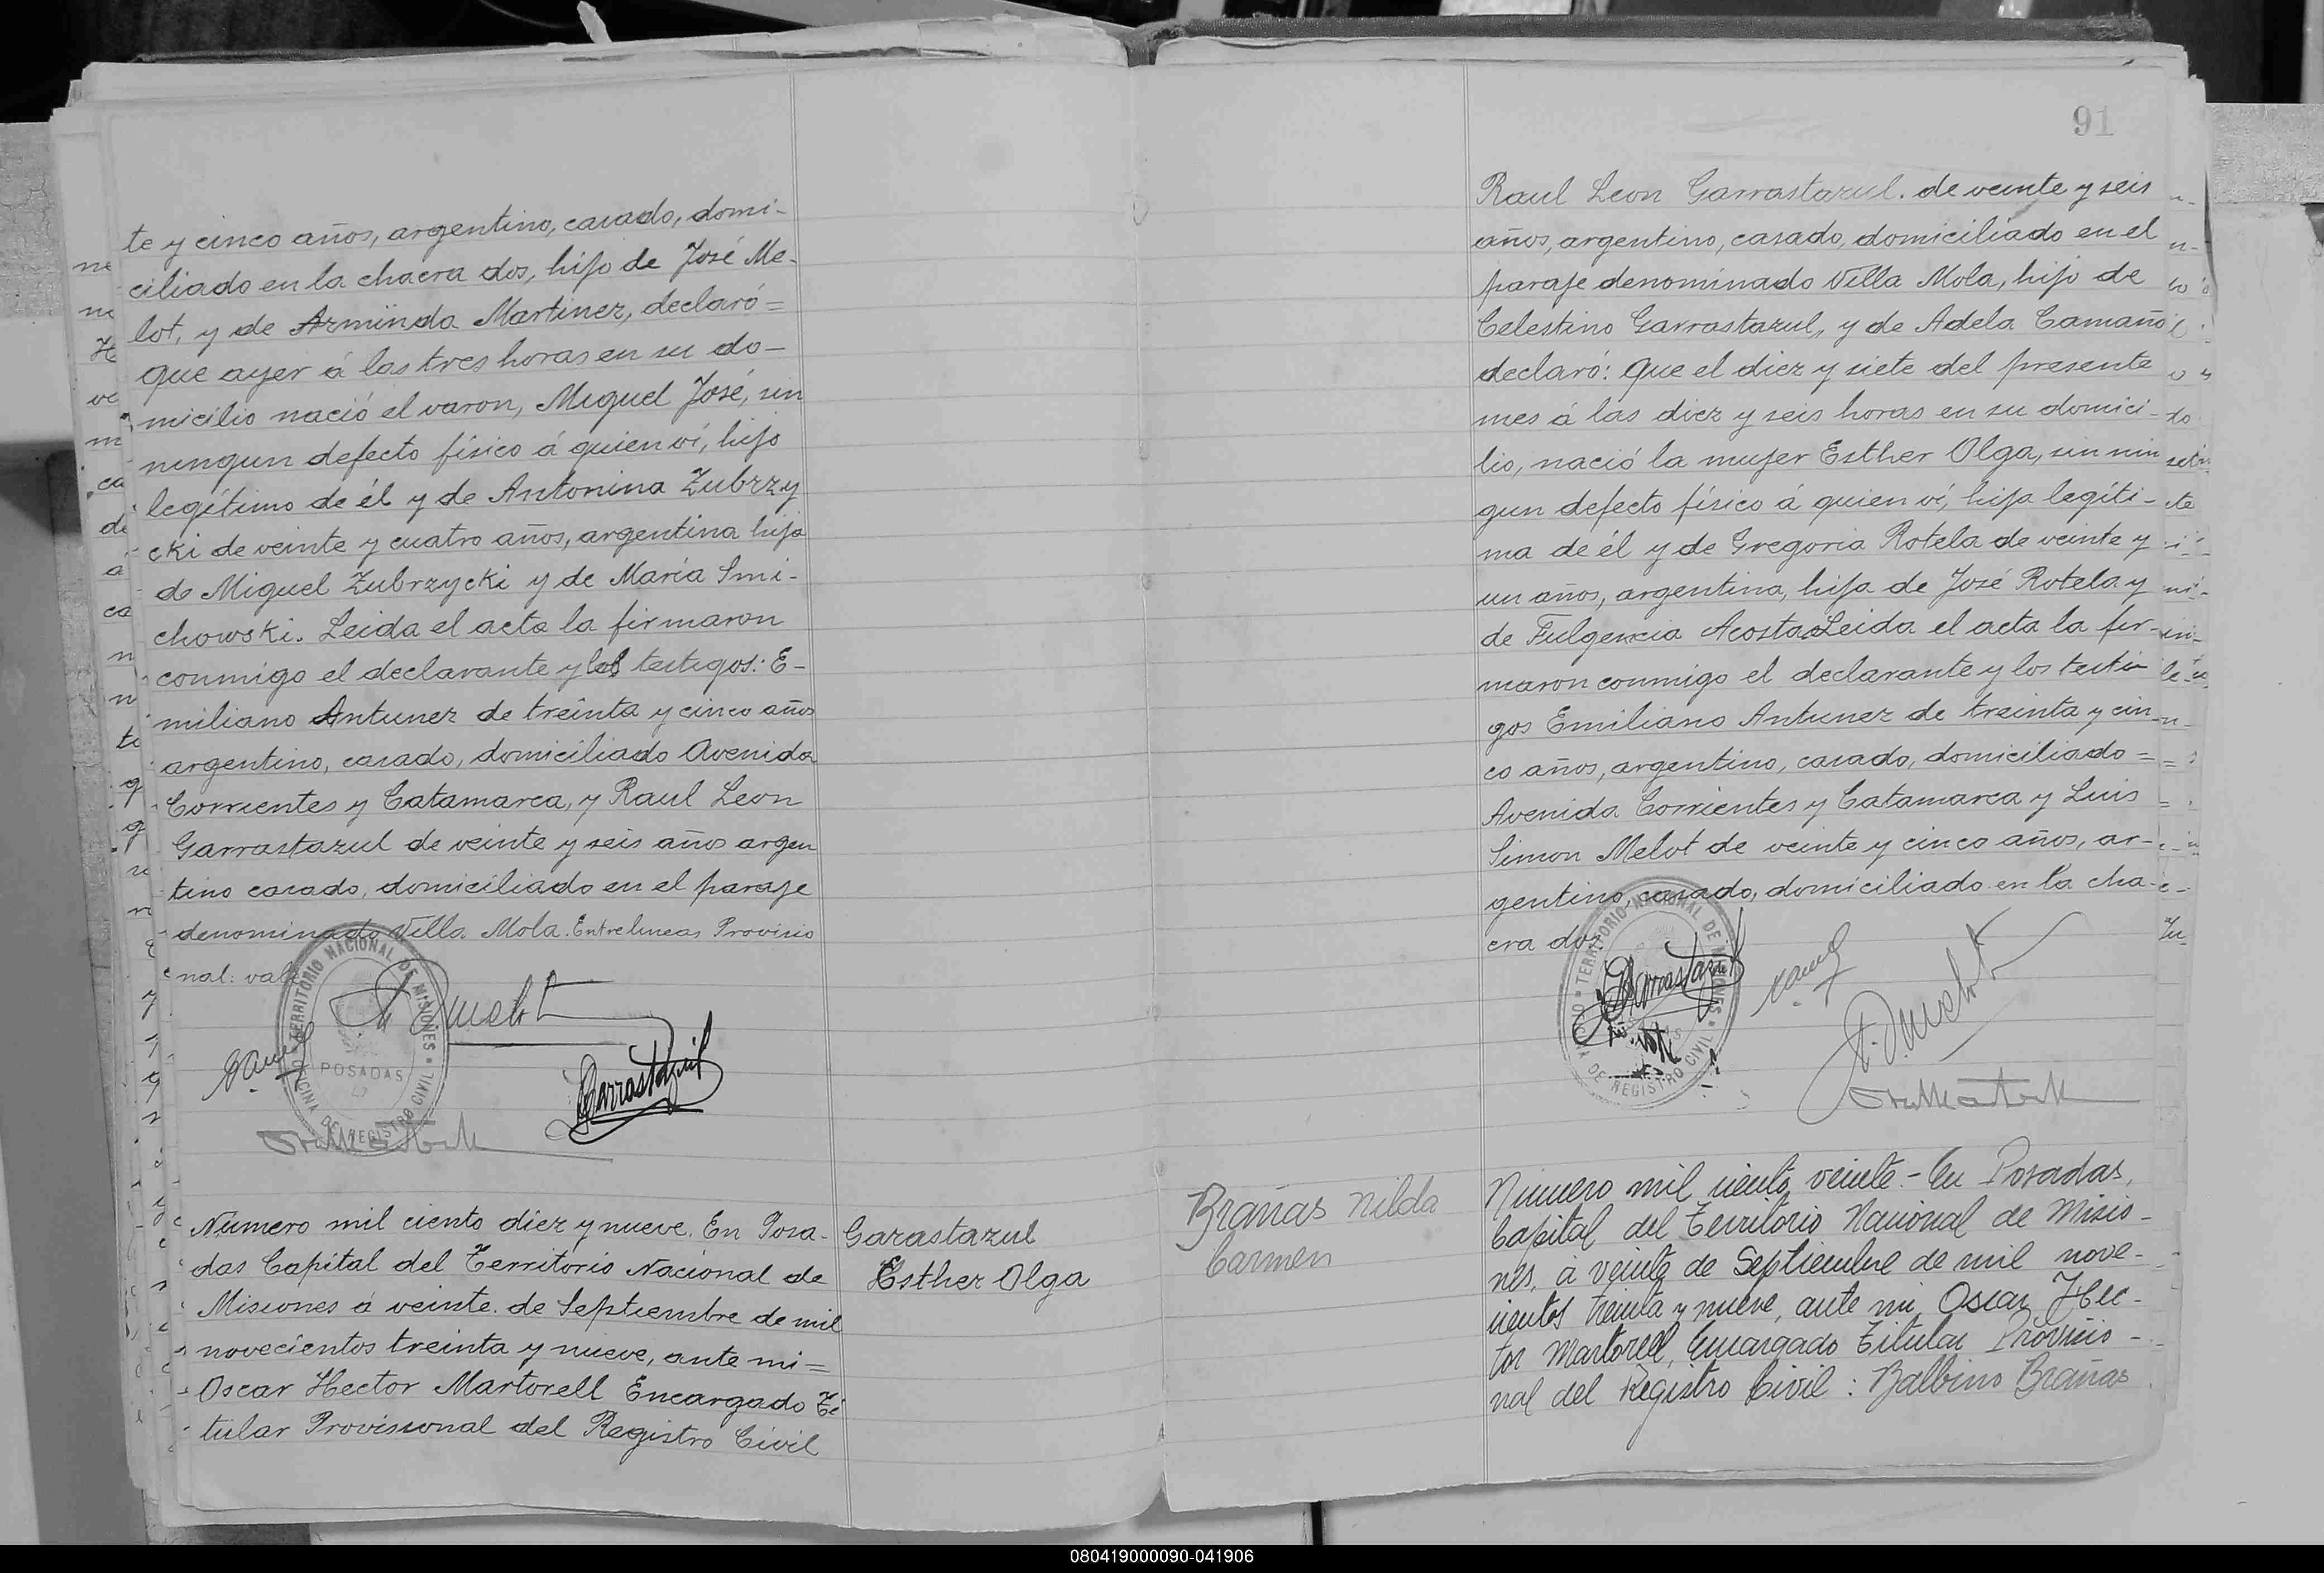 te y cinco años, argentino, casado, domi-
ciliado en la chacra dos, hijo de José Me-
lot, y de Arminda Martinez, declaró=
que ayer á las tres horas en su do-
micilio nació el varon, Miguel José, sin
ningun defecto físico á quien ví, hijo
legítimo de él y de Antonina Zubrzy
cki de veinte y cuatro años, argentina hija
de Miguel Zubrzycki y de María Smi-
chowski. Leida el acta la firmaron
conmigo el declarante y los testigos: E-
miliano Antunez de treinta y cinco años
argentino, casado, domiciliado Avenida
Corrientes y Catamarca, y Raul Leon
Garrastazul de veinte y seis años argen
tino casado, domiciliado en el paraje
denominado Villa Mola. Entrelineas Provisio
nal: vale
TERRITORIO NACIONAL DE MISIONES
POSADAS
OFICINA DE REGISTRO CIVIL
Garrastazul
Numero mil ciento diez y nueve. En Posa-
das Capital del Territorio Nacional de
Misiones á veinte. de Septiembre de mil
novecientos treinta y nueve, ante mi=
Oscar Hector Martorell Encargado Ti
tular Provisional del Registro Civil
Garastazul
Esther Olga
91
Raul Leon Garrastazul. de veinte y seis
años, argentino, casado, domiciliado en el
paraje denominado Villa Mola, hijo de
Celestino Garrastazul, y de Adela Camaño
declaró: que el diez y siete del presente
mes á las diez y seis horas en su domici-
lio, nació la mujer Esther Olga, sin nin
gun defecto físico á quien ví, hija legíti-
ma de él y de Gregoria Rotela de veinte y
un años, argentina, hija de José Rotela y
de Fulgencia Acosta Leida el acta la fir-
maron conmigo el declarante y los testi
gos Emiliano Antunez de treinta y cin-
co años, argentino, casado, domiciliado=
Avenida Corrientes y Catamarca y Luis
Simon Melot de veinte y cinco años, ar-
gentino, casado, domiciliado en la cha-
cra dos.
TERRITORIO NACIONAL DE MISIONES
OFICINA DE REGISTRO CIVIL
Garrastazul
Brañas Nilda
Carmen
Numero mil ciento veinte.- En Posadas,
Capital del Territorio Nacional de Misio-
nes, á veinte de Septiembre de mil nove-
cientos treinta y nueve, ante mi, Oscar Hec-
tor Martorell, Encargado Titular Provisio-
nal del Registro Civil: Balbino Brañas
080419000090-041906